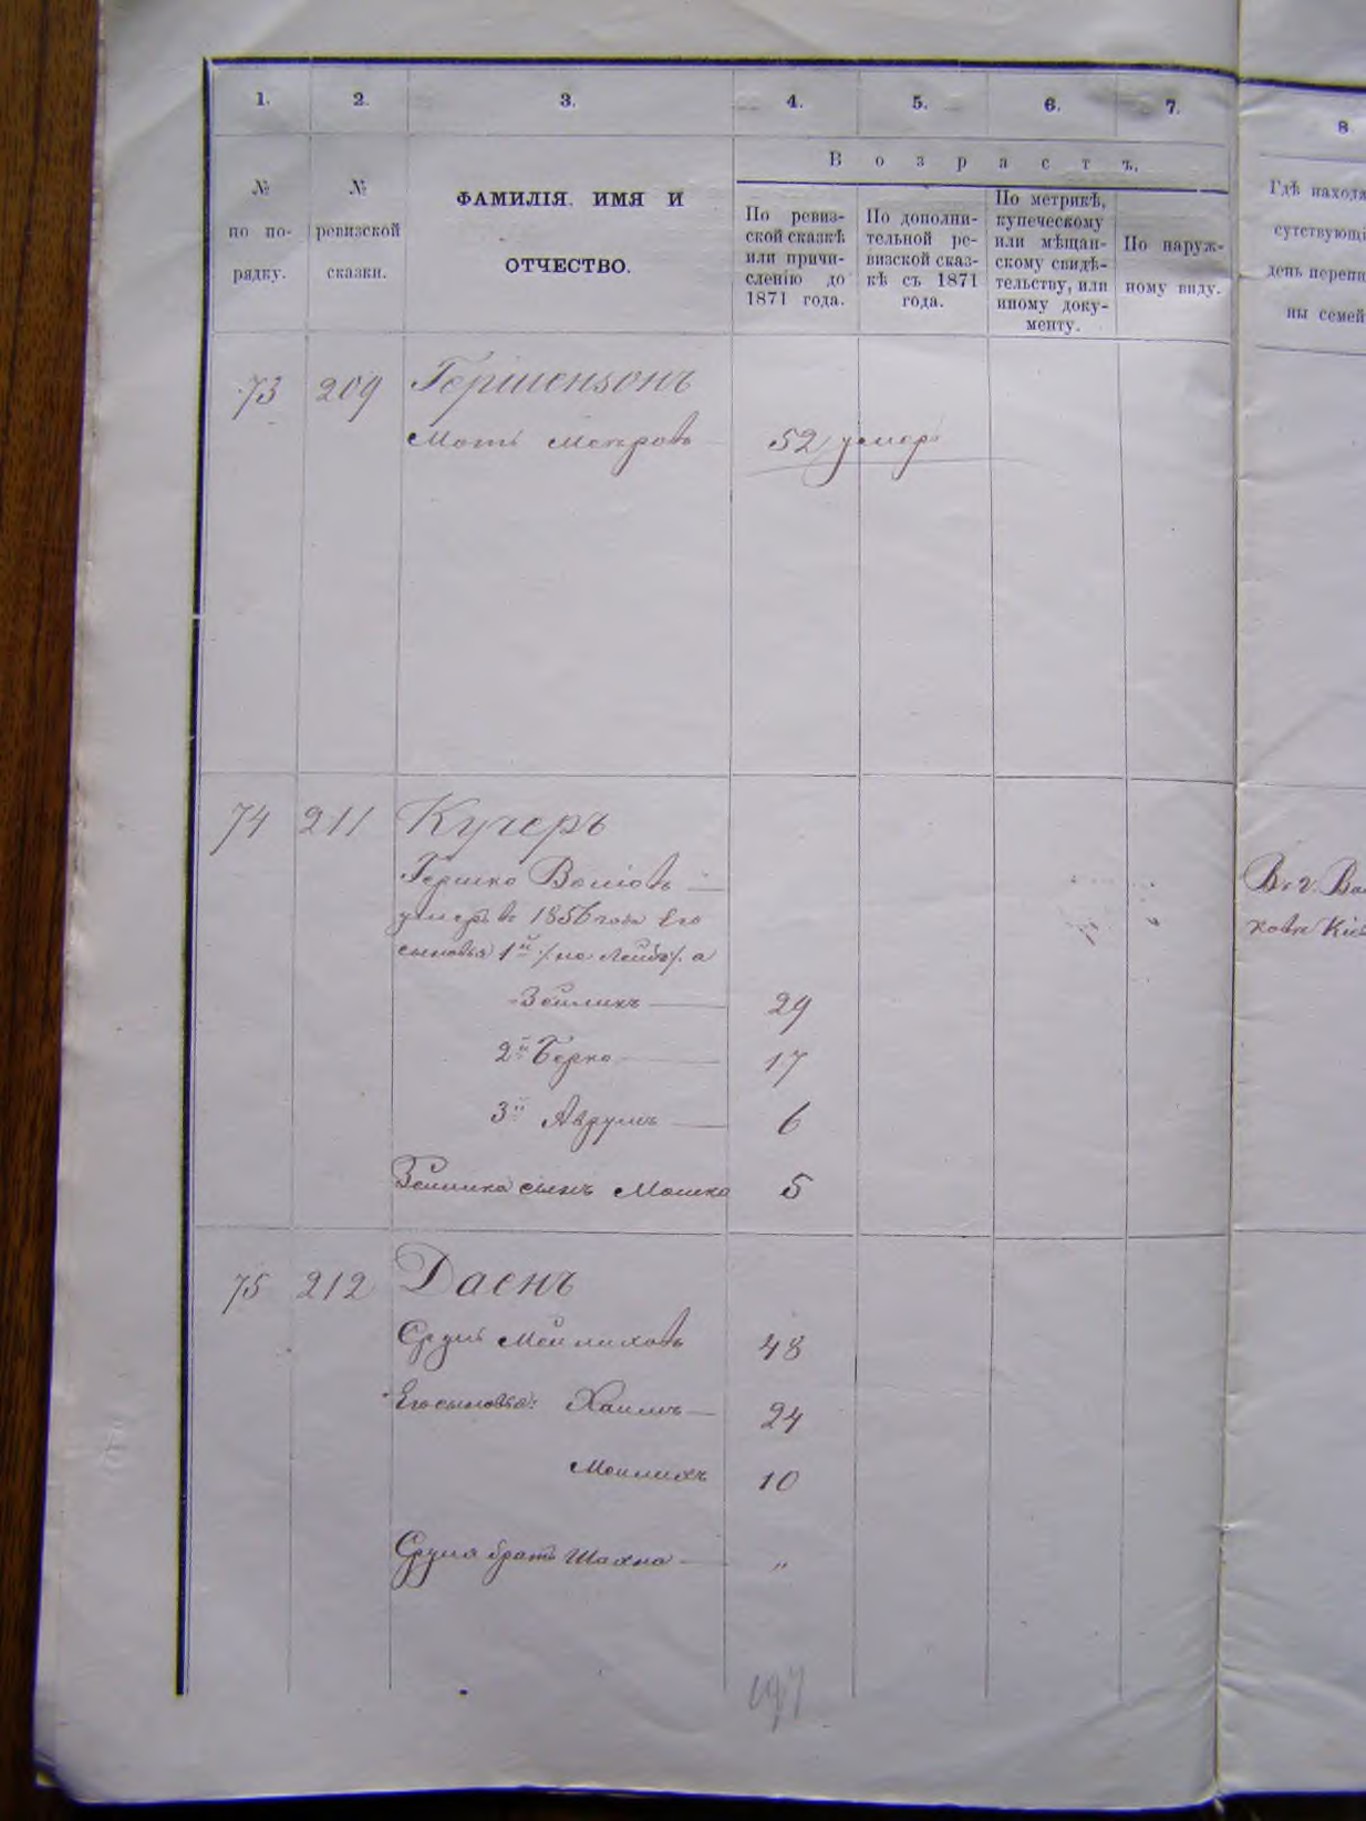 1. 2. 3. 4. 5. 6. 7. 8
Возрастъ.
№ по по-рядку.
№ ревизской сказки.
ФАМИЛІЯ, ИМЯ И
ОТЧЕСТВО.
По ревиз-
ской сказкѣ
или причи-
сленію до
1871 года.
По дополни-
тельной ре-
визской сказ-
кѣ съ 1871
года.
По метрикѣ,
купеческому
или мѣщан-
скому свидѣ-
тельству, или
иному доку-
менту.
По наруж-
ному виду.
Гдѣ находя
сутствующі
день переп
ны семей
73 209 Гершензонъ
Моть 52 умеръ
74 211 Кучеръ
Гершко
умеръ въ 1856 года Его
сыновья 1й /по Лейбѣ/ а
Зейликъ 29
2й Берко 17
3й Аврумъ 6
Зейлика сынъ Мошко 5
75 212 Даенъ
Сруль Мейлиховъ 48
Его сыновья: Хаимъ 24
Мейлихъ 10
Сруля братъ Шахна "
В. г. Ва
ховѣ Кіе
197